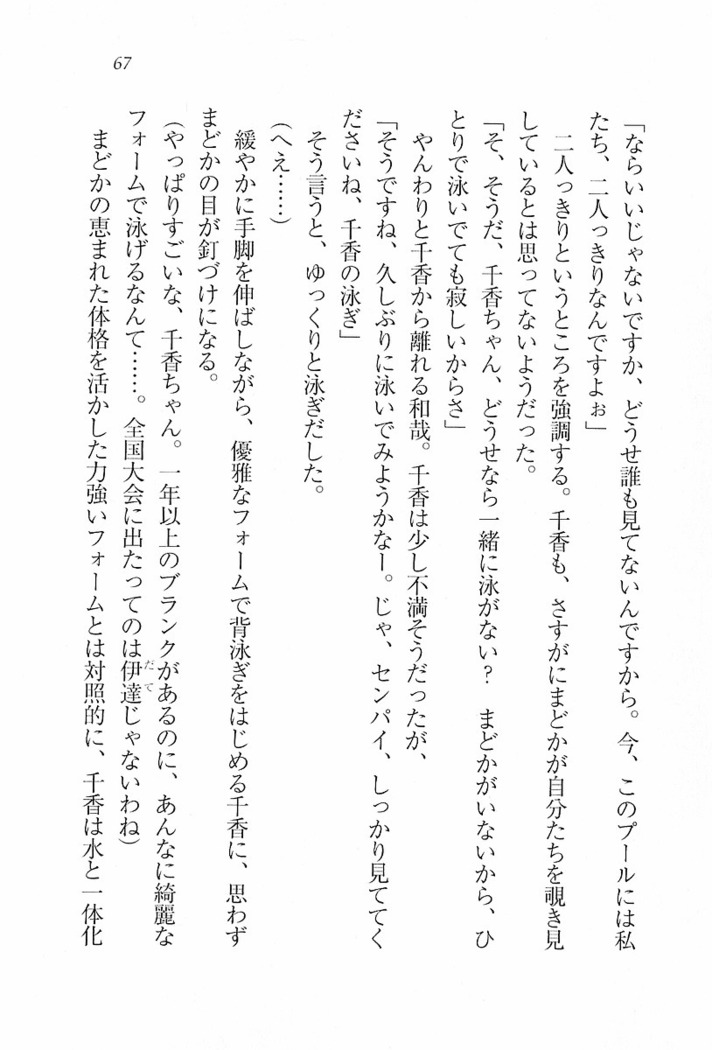 67
「ならいいじゃないですか、どうせ誰も見てないんですから。今、このプールには私
たち、二人っきりなんですよぉ」
二人っきりというところを強調する。千香も、さすがにまどかが自分たちを覗き見
しているとは思ってないようだった。
「そ、そうだ、千香ちゃん、どうせなら一緒に泳がない？　まどかがいないから、ひ
とりで泳いでても寂しいからさ」
やんわりと千香から離れる和哉。千香は少し不満そうだったが、
「そうですね、久しぶりに泳いでみようかなー。じゃ、センパイ、しっかり見ててく
ださいね、千香の泳ぎ」
そう言うと、ゆっくりと泳ぎだした。
（へえ……）
緩やかに手脚を伸ばしながら、優雅なフォームで背泳ぎをはじめる千香に、思わず
まどかの目が釘づけになる。
（やっぱりすごいな、千香ちゃん。一年以上のブランクがあるのに、あんなに綺麗な
フォームで泳げるなんて……。全国大会に出たってのは伊達じゃないわね）
だて
まどかの恵まれた体格を活かした力強いフォームとは対照的に、千香は水と一体化